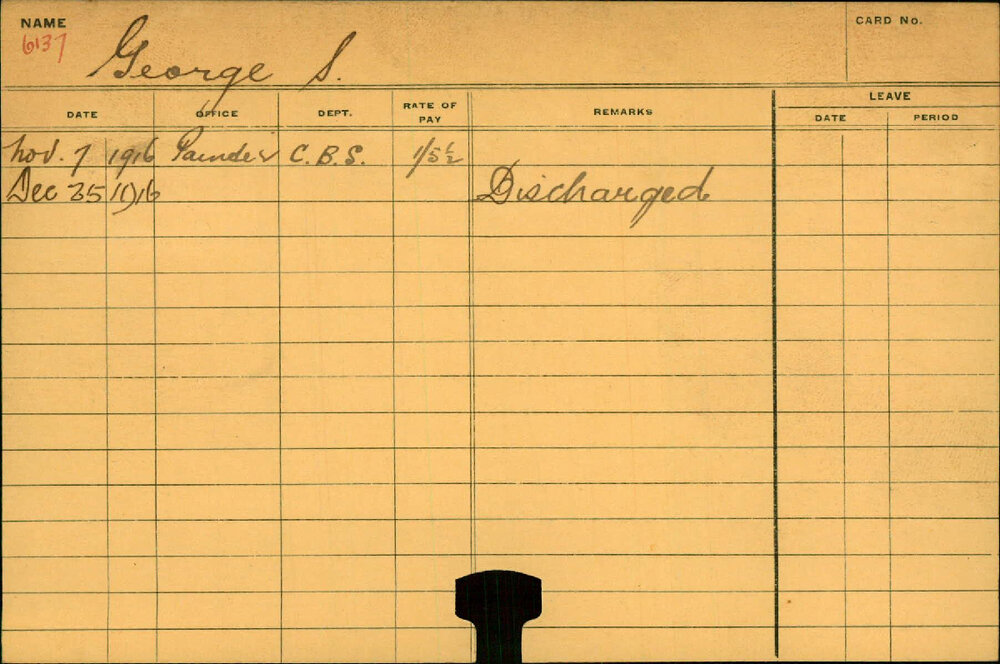 NAME CARD No.
6137 George S.
LEAVE
DATE OFFICE DEPT. RATE OF PAY REMARKS DATE PERIOD
Nov. 7 1916 Painter C.B.S. 1/5½
Dec 1916 Discharged